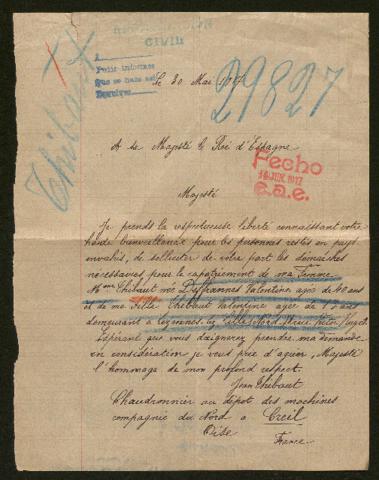 CIVIL
A
Pedir informes
Que se hace así
Thibaut
Le 30 Mai 1917
29827
A sa Majesté le Roi d'Espagne
Fecho
E.a.e.
Majesté
Je prends la respectueuse liberté connaissant votre
haute bienveillance pour les personnes restés en pays
envahis, de solliciter de votre part les démarches
nécessaires pour le rapatriement de ma femme
Mme Thibaut née Valentine agée de 40 ans
et de ma fille Thibaut Valentine agée de ans
demeurant à Lezennes lez Lille Nord
Espérant que vous daignerez prendre ma demande
en considération je vous prie d'agréer, Majesté
l'hommage de mon profond respect.
Jean Thibaut
Chaudronnier au dépot des machines
compagnie du Nord à Creil
Oise
France